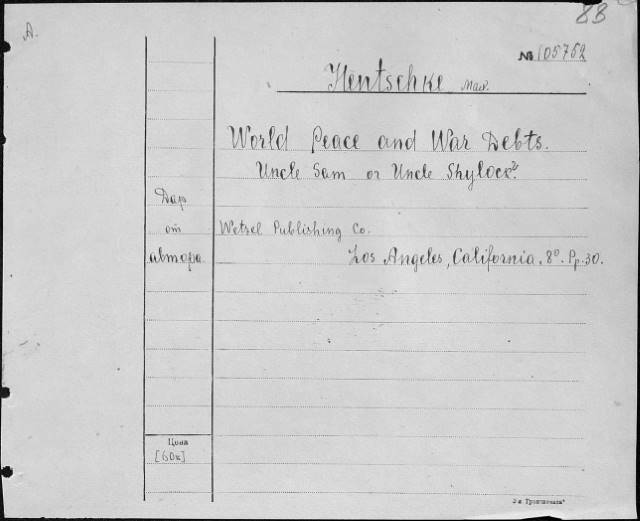 88
A.
№ 105752
Hentschke Max.
World Peace and War Debts.
Uncle Sam or Uncle Shylock?
Дар
от
автора
Wetzel Publishing Co.
Los Angeles, California. 8°. Pp. 30.
Цена
[60к]